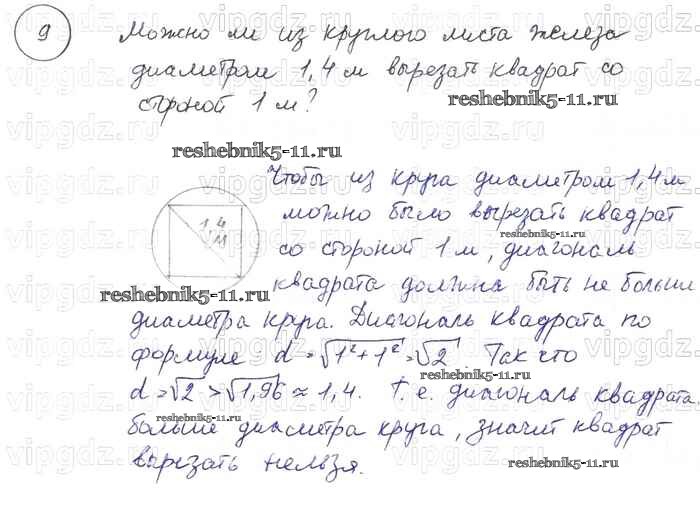 9
Можно ли из круглого листа железа
диаметром 1,4 м вырезать квадрат со
стороной 1 м?
reshebnik5-11.ru
reshebnik5-11.ru
Чтобы из круга диаметром 1,4 м
можно было вырезать квадрат
reshebnik5-11.ru
1,4
м
со стороной 1 м, диагональ
квадрата должна быть не больши
reshebnik5-11.ru
диаметра круга. Диагональ квадрата по
формуле d = √1²+1² = √2 Так что
d = √2 > √1,96 ≈ 1,4. Т.е. диагональ квадрата
reshebnik5-11.ru
больши диаметра круга, значит квадрат
вырезать нельзя.
reshebnik5-11.ru
vipgdz.ru